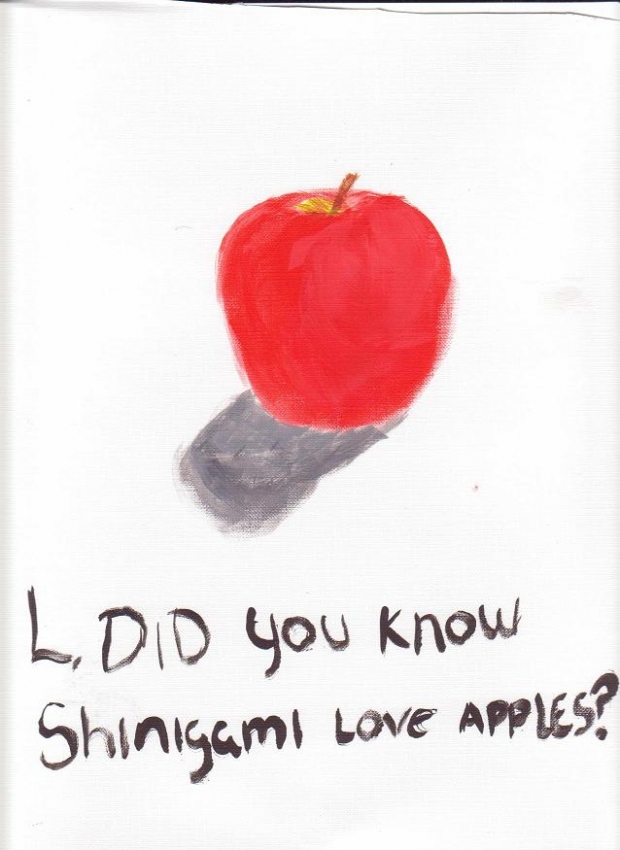 L, DID you know
Shinigami LOVE APPLES?